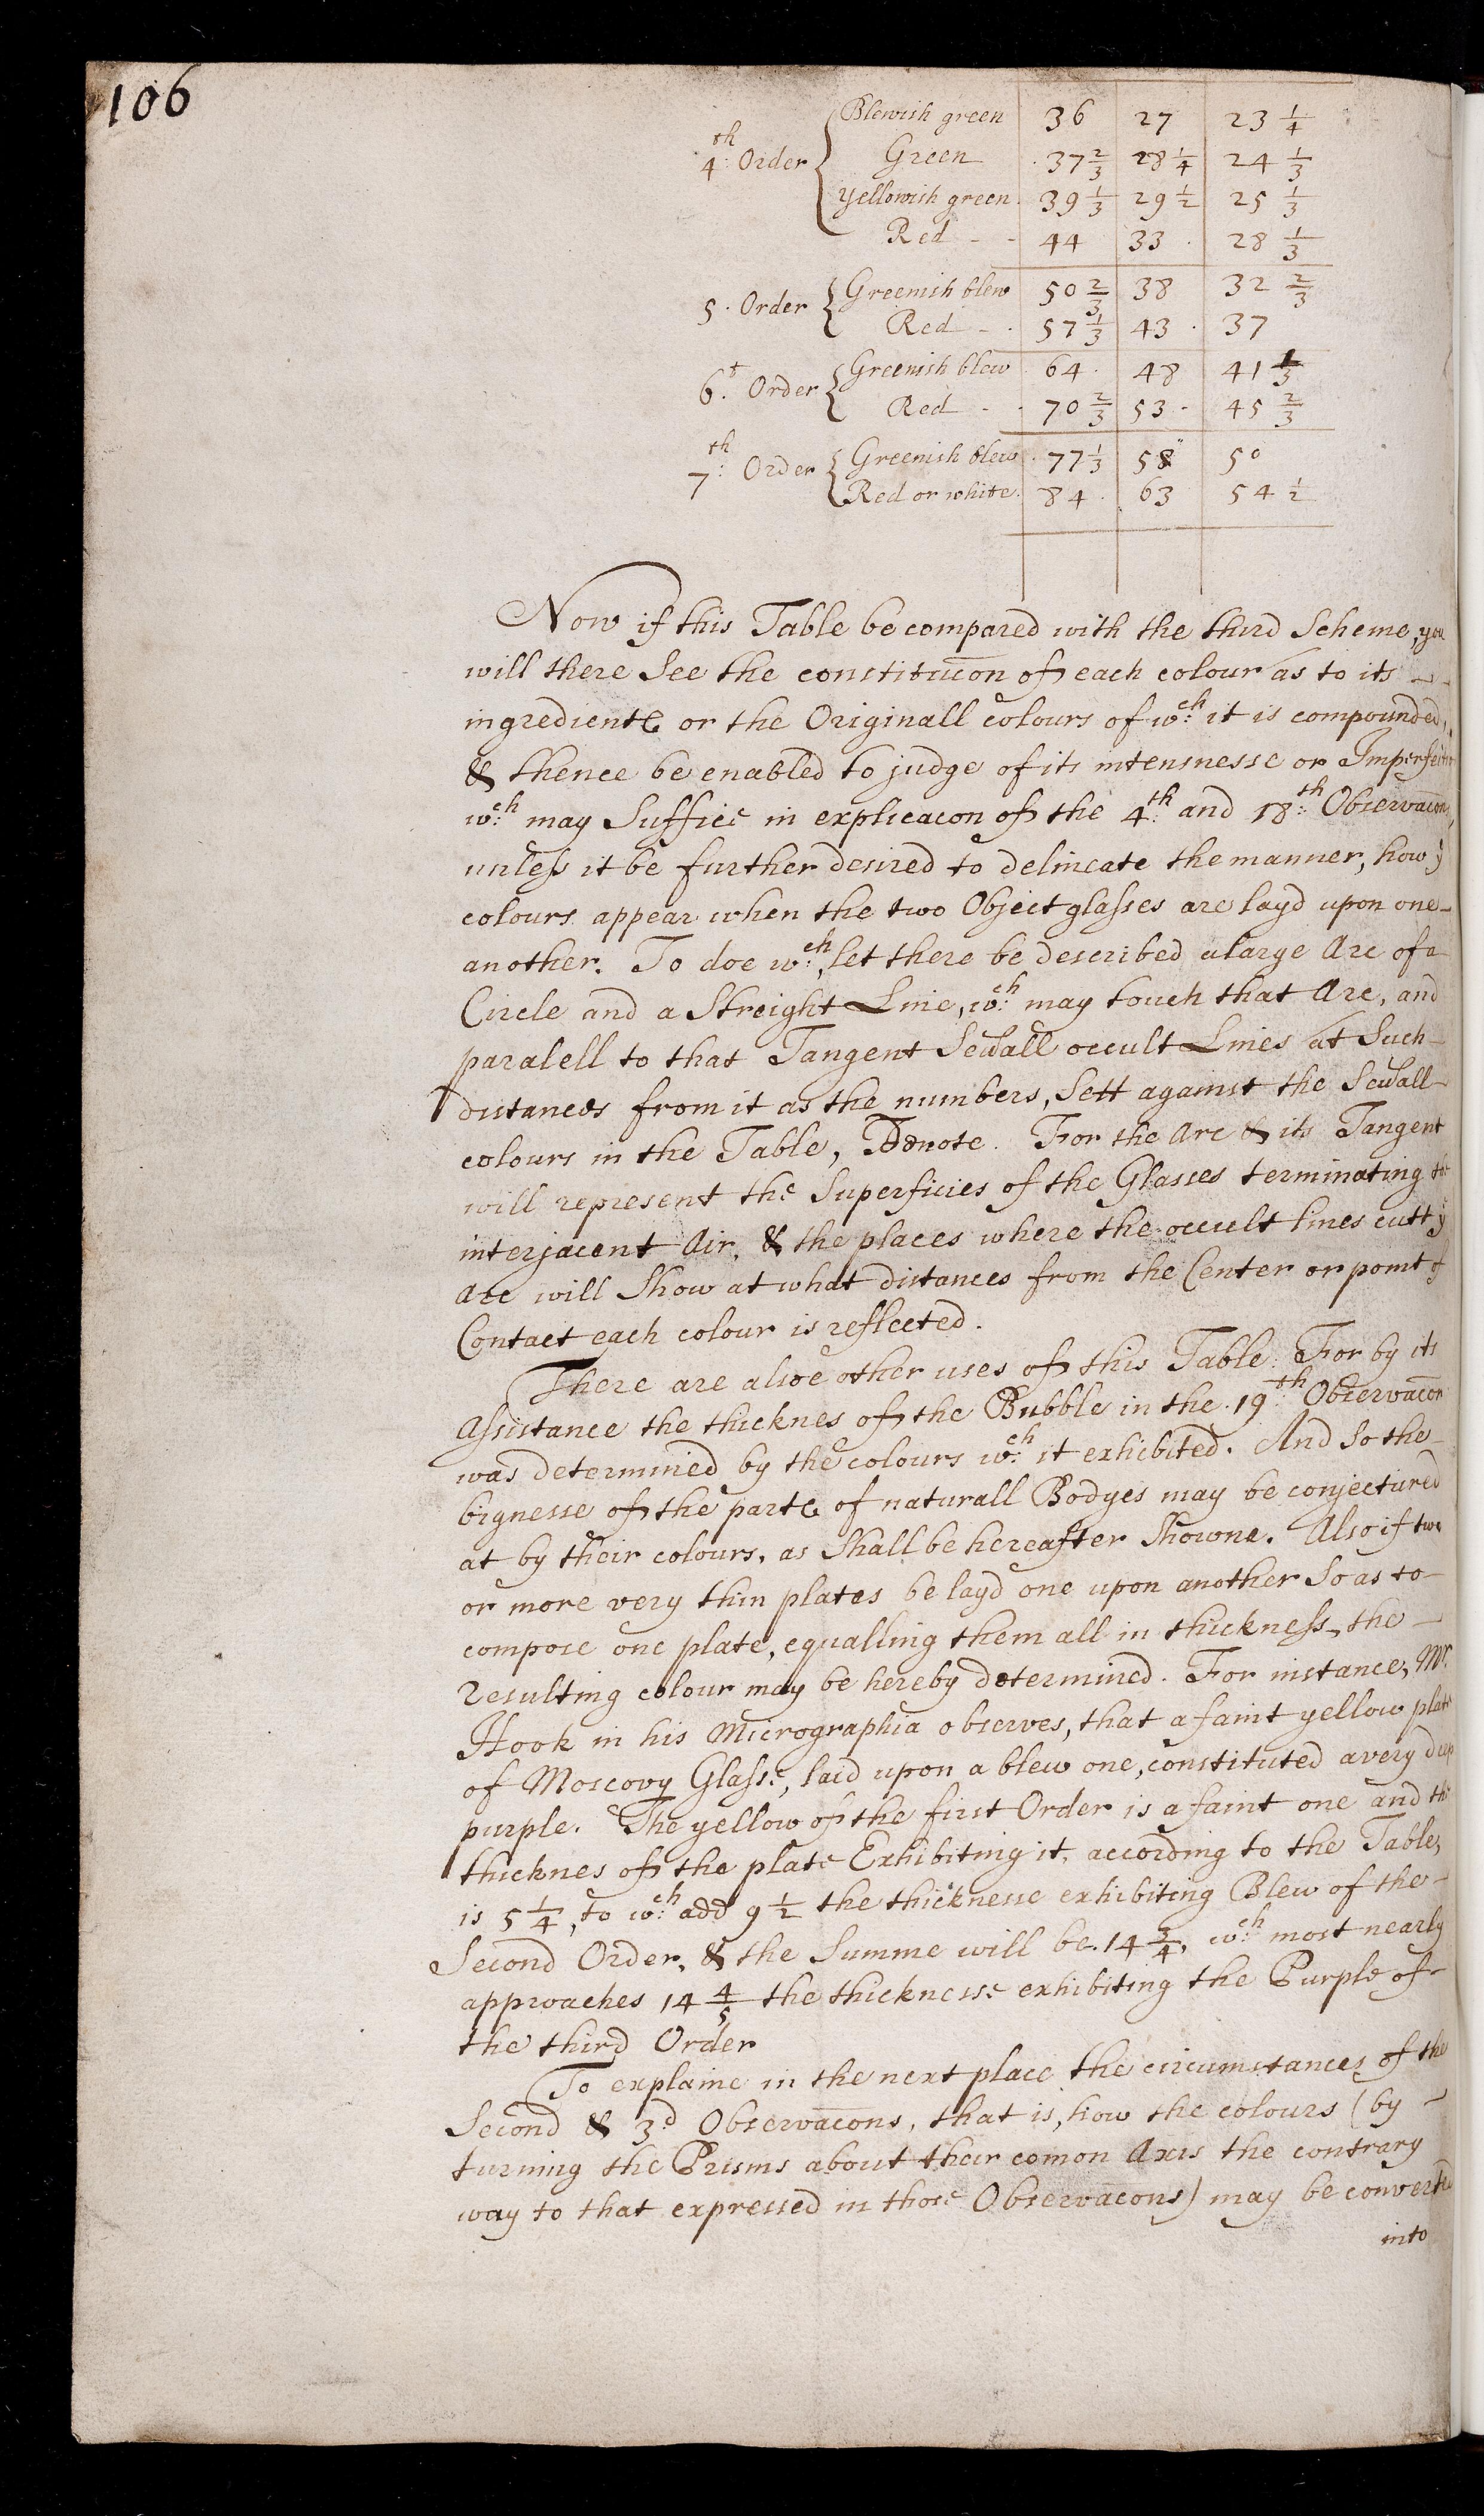 106
Blewish green 36 27 23 1/4
4th: Order Green 37 2/3 28 1/4 24 1/3
Yellowish green 39 1/3 29 1/2 25 1/3
Red - - 44 33 28 1/3
5. Order Greenish blew 50 2/3 38 32 2/3
Red - . 57 1/3 43 . 37
6.t Order Greenish blew 64 . 48 41 1/3
Red - . 70 2/3 53 - 45 2/3
7th: Order Greenish blew 77 1/3 58 50
Red or white. 84 . 63 54 1/2
Now if this Table be compared with the third Scheme, you
will there See the constitucōn of each colour as to its
ingredients or the Originall colours of wch: it is compounded,
& thence be enabled to judge of its intensnesse or Imperfection
wch: may Suffice in explicacon of the 4th: and 18th: Observacōn,
unless it be further desired to delineate the manner, how ye
colours appear when the two Object glasses are layd upon one-
another. To doe wch:, let there be described a large Arc of a
Circle and a Streight Line, wch: may touch that Arc, and
paralell to that Tangent Seṽall occult Lines at Such-
distances from it as the numbers, Sett against the Seṽall-
colours in the Table, Denote. For the Arc & its Tangent
will represent the Superficies of the Glasses terminating the
interjacent Air, & the places where the occult lines cutt ye
Arc will Show at what distances from the Center or point of
Contact each colour is reflected.
There are alsoe other uses of this Table: For by its
Assistance the thicknes of the Bubble in the 19th: Observacōn
was determined by the colours wch: it exhibited. And So the-
bignesse of the parts of naturall Bodyes may be conjectured
at by their colours, as Shall be hereafter Showne. Also if two
or more very thin plates be layd one upon another So as to-
compose one plate, equalling them all in thickness, the-
resulting colour may be hereby determined. For instance, Mr.
Hook in his Micrographia observes, that a faint yellow plate
of Moscovy Glasse, laid upon a blew one, constituted a very deep
purple. The yellow of the first Order is a faint one and the
thicknes of the plate Exhibiting it, according to the Table,
is 5 1/4, to wch: add 9 1/2 the thicknesse exhibiting Blew of the-
Second Order, & the Summe will be 14 3/4, wch: most nearly
approaches 14 4/5 the thicknesse exhibiting the Purple of-
the third Order
To explaine in the next place the circumstances of the
Second & 3d Observacōns, that is, how the colours (by -
turning the Prisms about their comon Axis the contrary
way to that expressed in those Observacōns) may be converted
into